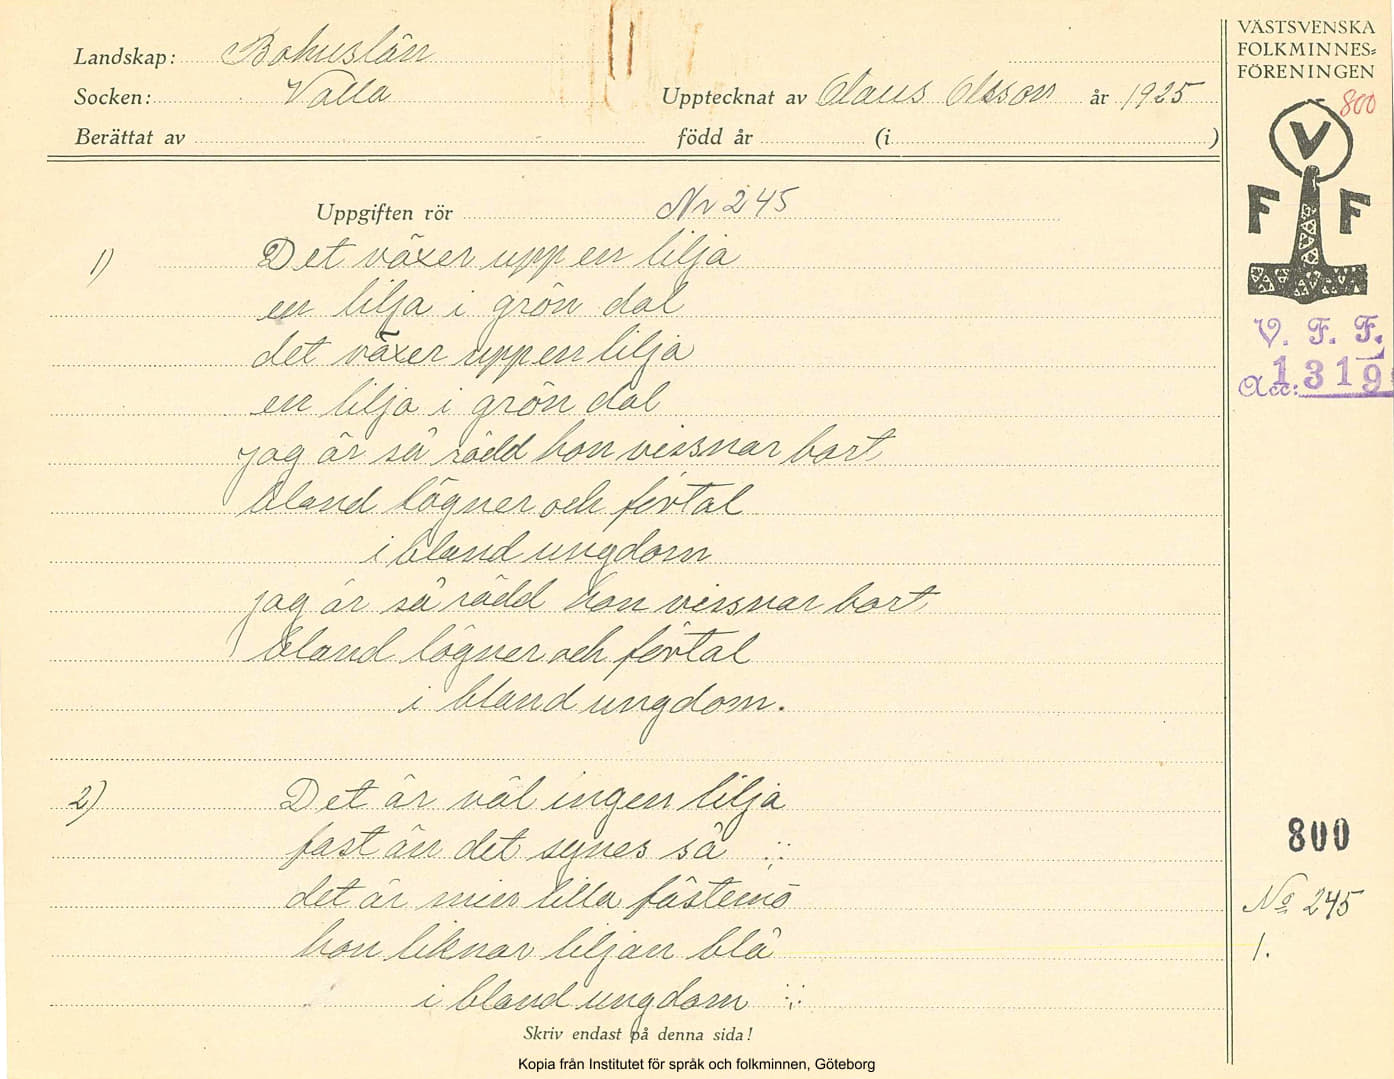 Landskap: Bohuslän
Socken: Valla
Upptecknat av Olaus Olsson år 1925
Berättat av
född år (i )
VÄSTSVENSKA
FOLKMINNES=
FÖRENINGEN
800
V
F F
V. F. F.
Acc: 1319
Uppgiften rör Nr 245
1) Det växer upp en lilja
en lilja i grön dal
det växer upp en lilja
en lilja i grön dal
jag är så rädd hon vissnar bort
bland lögner och förtal
i bland ungdom
jag är så rädd hon vissnar bort
bland lögner och förtal
i bland ungdom.
2) Det är väl ingen lilja
fast än det synes så :;:
det är min lilla fästemö
hon liknar liljan blå
i bland ungdom :;:
800
No 245
1.
Skriv endast på denna sida!
Kopia från Institutet för språk och folkminnen, Göteborg